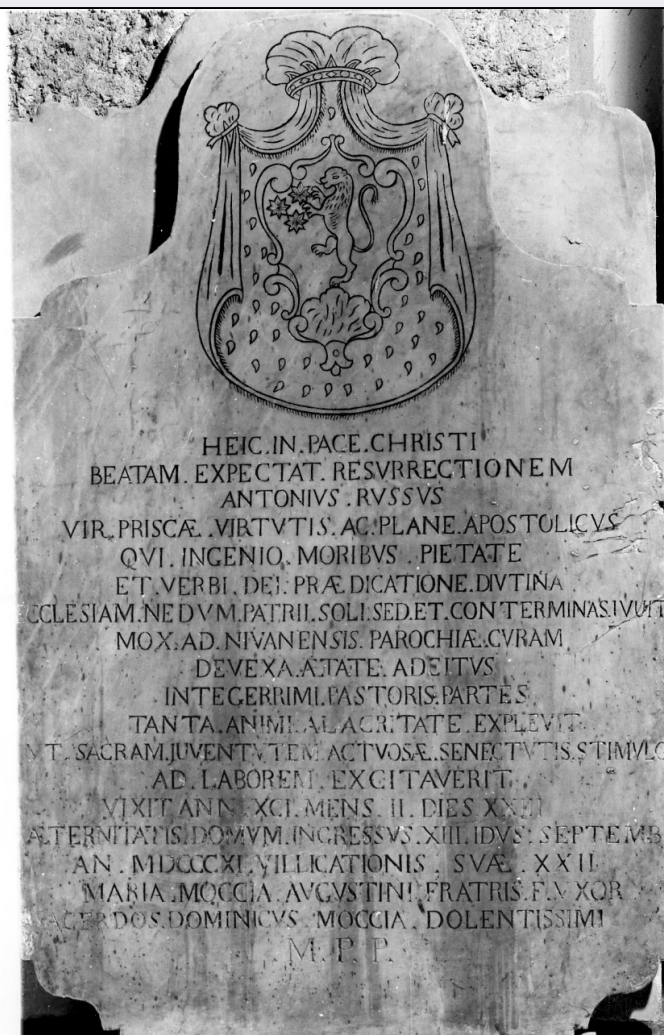 HEIC.IN.PACE.CHRISTI
BEATAM.EXPECTAT.RESVRRECTIONEM
ANTONIVS.RVSSVS
VIR.PRISCÆ.VIRTVTIS.AC.PLANE.APOSTOLICVS
QVI.INGENIO.MORIBVS PIETATE
ET.VERBI.DEI.PRÆDICATIONE.DIVTINA
CCLESIAM.NEDVM.PATRII.SOLI.SED.ET.CONTERMINAS.IVUIT
MOX.AD.NIVANENSIS.PAROCHIÆ.CVRAM
DEVEXA.ÆTATE.ADEITVS
INTEGERRIMI.PASTORIS.PARTES
TANTA.ANIMI.ALACRITATE.EXPLEVIT
VT.SACRAM.JUVENTVTEM.ACTVOSÆ.SENECTVTIS.STIMVLO
AD.LABOREM.EXCITAVERIT
VIXIT.ANN.XCI.MENS.II.DIES
ÆTERNITATIS.DOMVM.INGRESSVS.XIII.IDVS.SEPTEMB
AN.MDCCCXI.VILLICATIONIS.SVÆ XXII
MARIA.MOCCIA.AVGVSTINI.FRATRIS.F.VXOR
ACERDOS.DOMINICVS MOCCIA.DOLENTISSIMI
M.P.P.